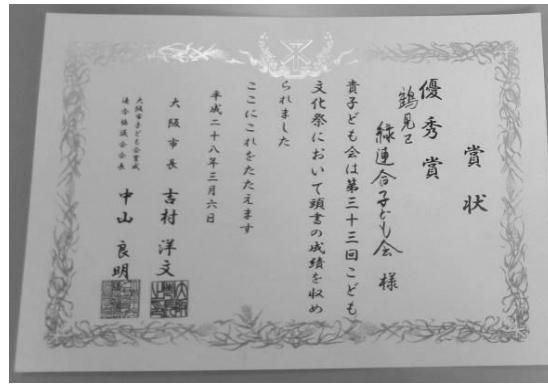 賞状
優秀賞
鶴見区
緑連合子ども会 様
貴子ども会は第三十三回こども
文化祭において頭書の成績を収め
られました
ここにこれをたたえます
平成二十八年三月六日
大阪市長 吉村洋文
大阪市子ども会育成
連合協議会会長 中山良明